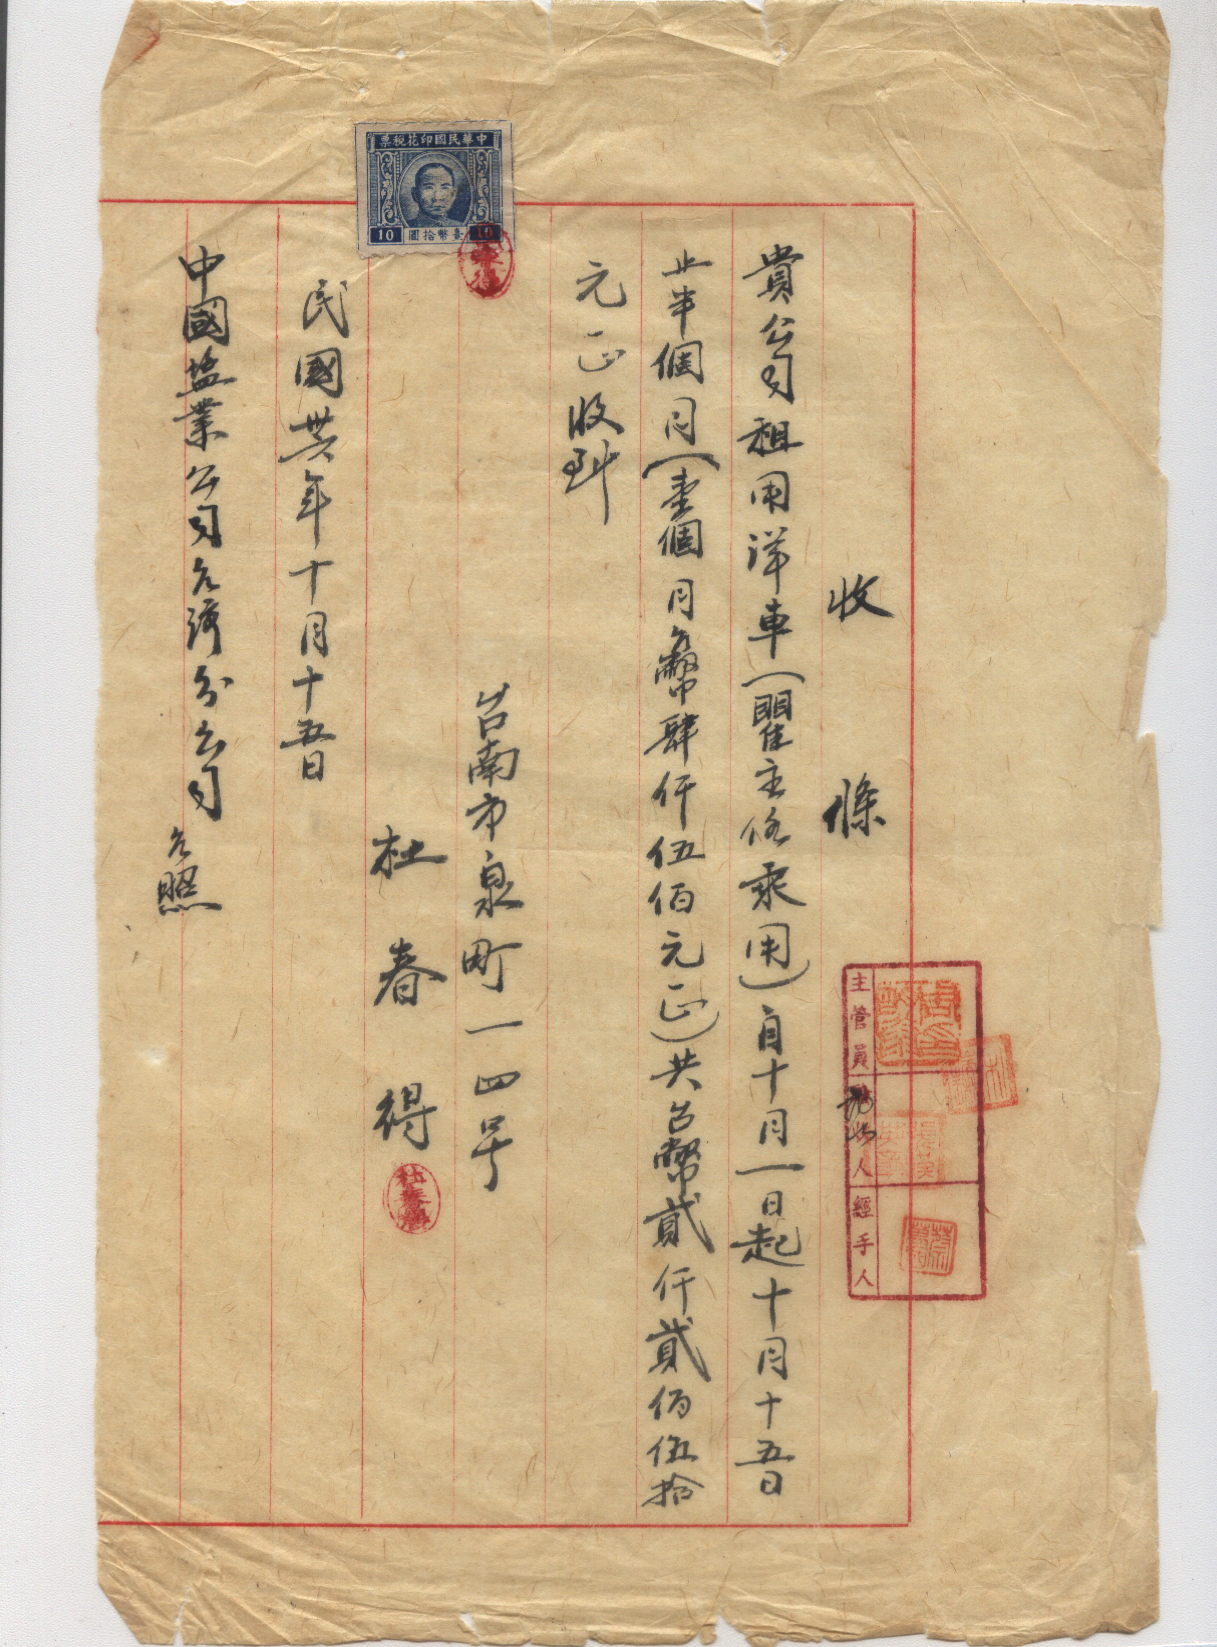 收條
貴公司租用洋車（瞿主任乘用）自十月一日起十月十五日
止半個月（壹個月台幣肆仟伍佰元正）共台幣貳仟貳佰伍拾
元正收到
台南市泉町一四号
杜春得
民國卅六年十月十五日
中國盐業公司台湾分公司
台照
中華民國印花稅票
10 臺幣拾圓 10
杜春得
主管員
人
經手人